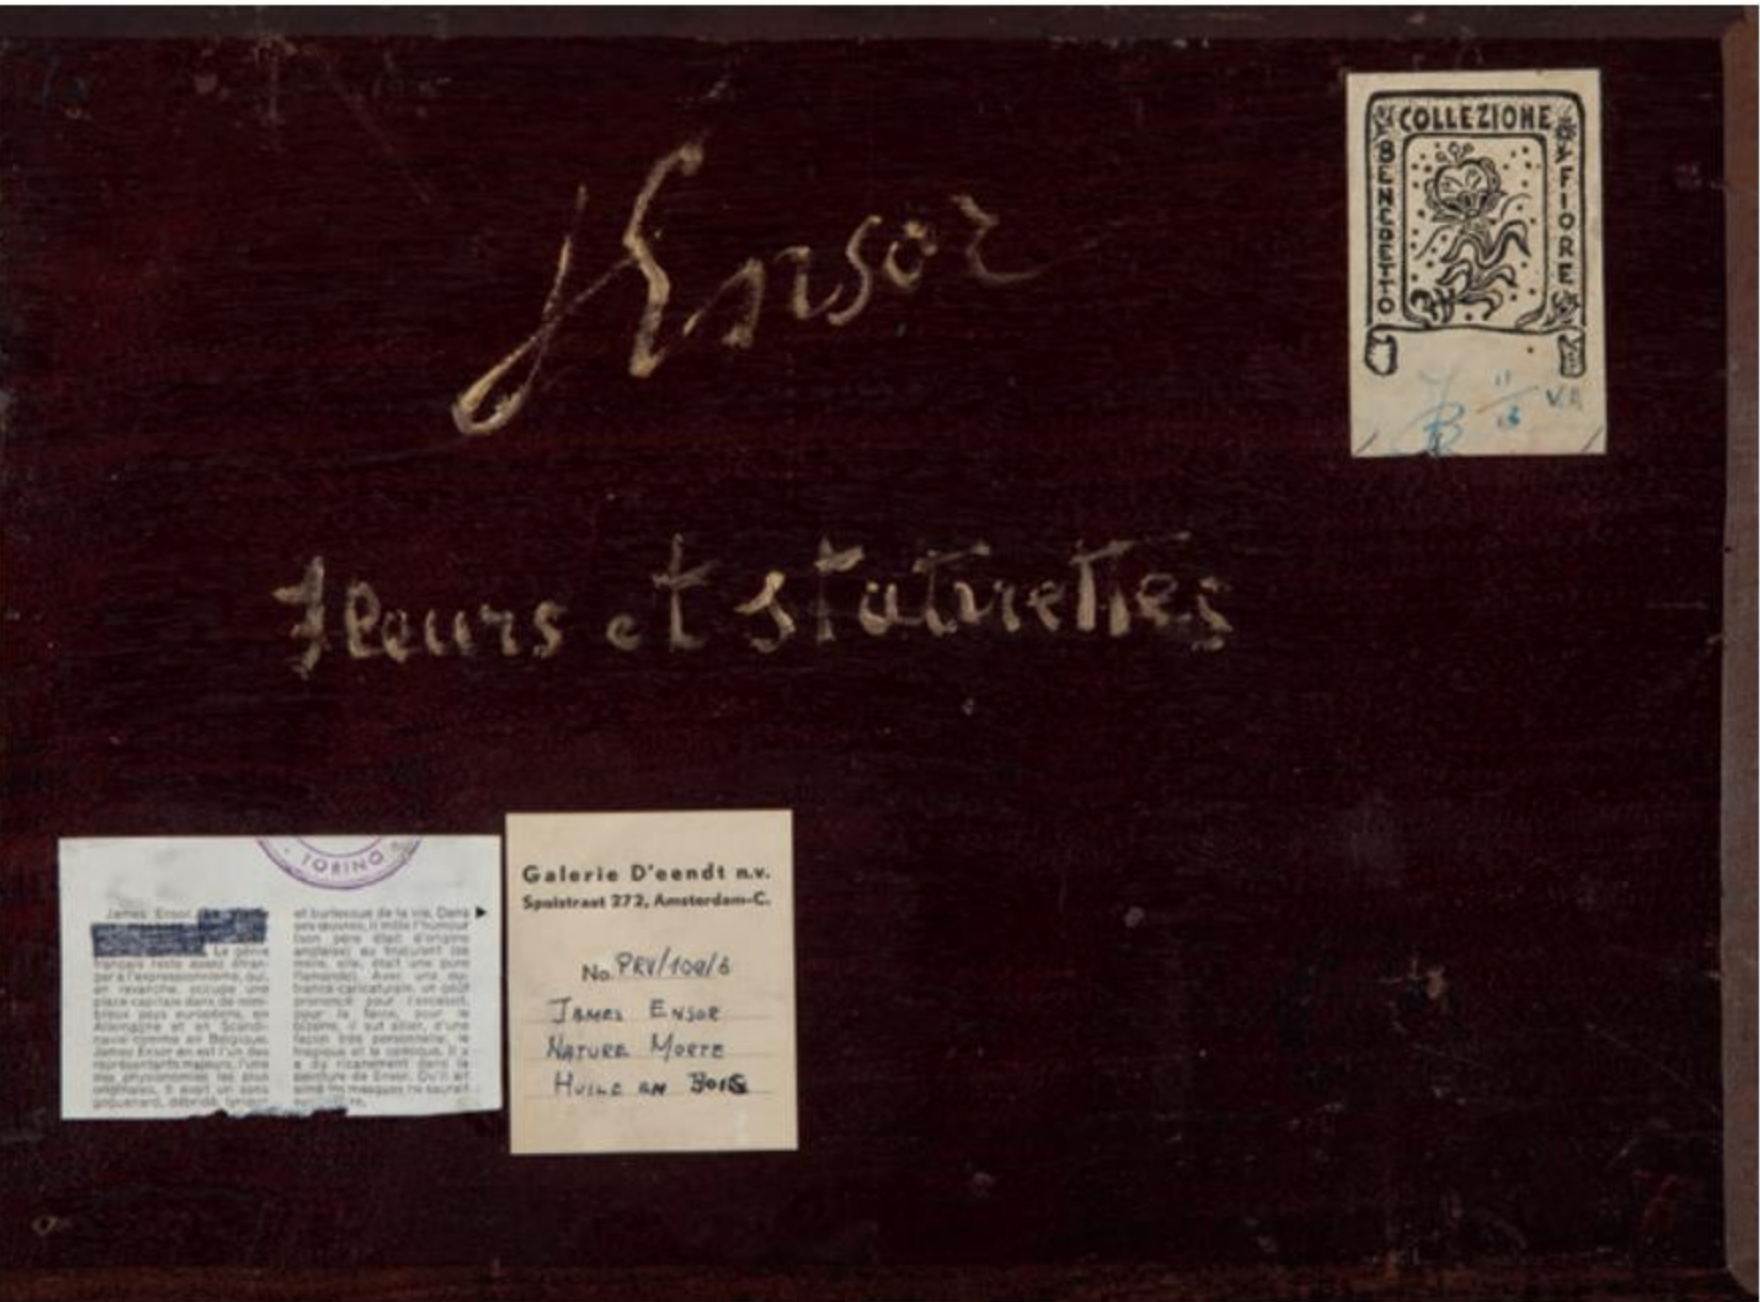 JEnsor
COLLEZIONE
BENEDETTO
FIORE
Fleurs et statuettes
TORINO
James Ensor.
Le génie
français reste assez étran-
ger à l'expressionnisme, qui,
en revanche, occupe une
place capitale dans de nom-
breux pays européens, en
Allemagne et en Scandi-
navie comme en Belgique.
James Ensor en est l'un des
représentants majeurs, l'une
des physionomies les plus
originales. Il avait un sens
goguenard, débridé,
et burlesque de la vie. Dans
ses œuvres, il mêle l'humour
(son père était d'origine
anglaise) au truculent (sa
mère, elle, était une pure
flamande). Avec une ou-
trance caricaturale, un goût
prononcé pour l'excessif,
pour la farce, pour le
bizarre, il sut allier, d'une
façon très personnelle, le
tragique et le comique. Il y
a du ricanement dans la
peinture de Ensor. Qu'il ait
aimé les masques ne saurait
Galerie D'eendt n.v.
Spuistraat 272, Amsterdam-C.
No. PRV/109/6
JAMES ENSOR
NATURE MORTE
HUILE BOIS